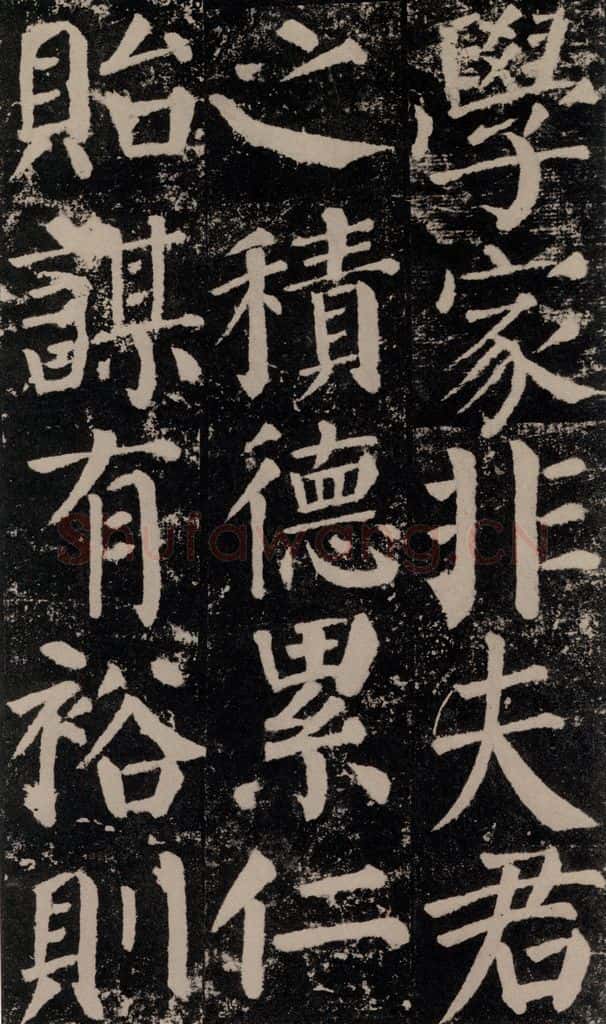 學家非夫君
之積德累仁
貽謀有裕則
Shufawang.CN